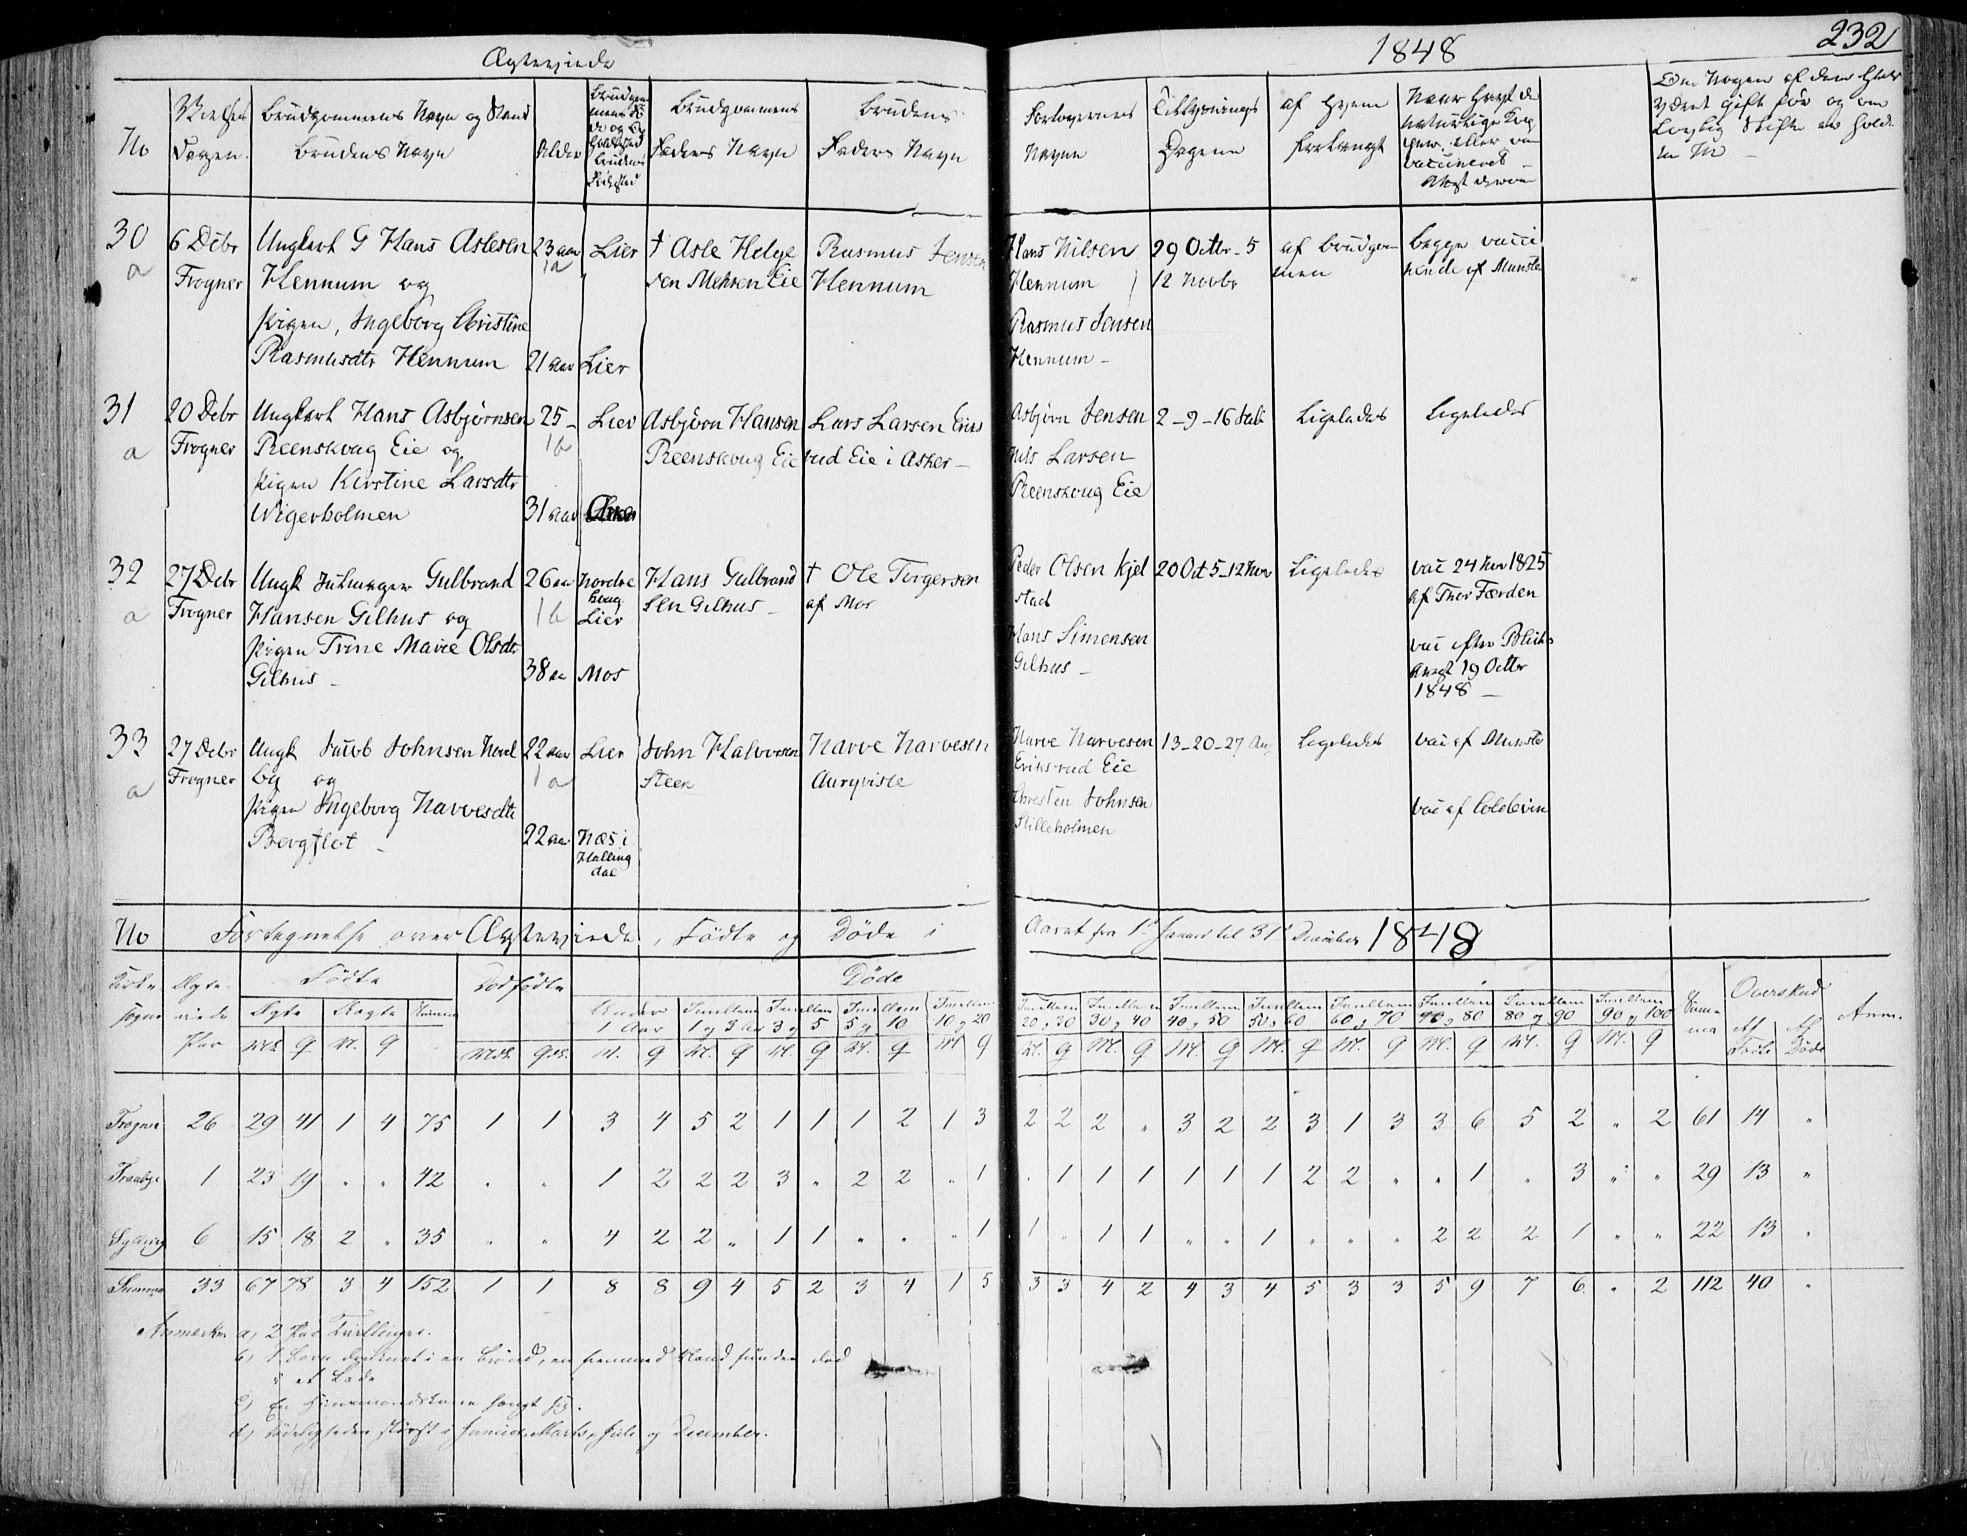 Ægteviede
1848
232
No
Vielses Dagen
Brudgommens Navn og Stand
Brudens Navn
Alder
Brudgommens Faders Navn
Brudens Faders Navn
Forlovernes Navne
Tillysnings Dagene
af Hvem forlangt
30 a
6 Debr Frogner
Ungkarl G Hans Aslesen
Hennum og
Pigen, Ingeborg Christine
Rasmusdtr Hennum
23 aar
1a
21 aar
Lier
Lier
† Asle Helge
sen Mehren Eie
Rasmus Jensen
Hennum
Hans Nilsen
Hennum
Rasmus Jensen
Hennum
29 Octbr - 5
12 Novbr
af Brudgom
men
begge vacci
nerede af Munster
31 a
20 Debr Frogner
Ungkarl Hans Asbjørnsen
Reenskoug Eie og
Pigen Kirstine Larsdtr
Wigerholmen
25 -
1b
31 aar
Lier
Asbjørn Hansen
Reenskoug Eie
Lars Larsen Eriks
rud Eie i Asker
Asbjørn Jensen
Nils Larsen
Reenskoug Eie
2 - 9 - 16 Juli
Ligeledes
Ligeledes
32 a
27 Debr Frogner
Ungk Gulbrand
Hansen Gilhus og
Pigen Trine Marie Olsdtr
Gilhus
26 aa
1b
38 aa
Nordre
Lier
Mos
Hans Gulbrand
sen Gilhus
† Ole Torgersen
af Mos
Peder Olsen Kjel
stad
Hans Simensen
Gilhus
Ligeledes
vac 24 Nov 1825
af Thor Færden
vac efter
Attest 19 Octbr
1848
33 a
27 Debr Frogner
Ungk Jacob Johnsen Nord
by og
Pigen Ingeborg Narvesdtr
Bergflot
22 aar
1a
22 aar
Lier
Næs i
Halling
dal
John Halvorsen
Steen
Narve Narvesen
Narve Narvesen
Eriksrud Eie
Christen Johnsen
Stilleholmen
13 - 20 - 27 Aug
Ligeledes
vac af Munster
vac af Coldevin
No Fortegnelse over Ægteviede, Fødte og Døde i Aaret fra 1 Januar til 31 December 1848
Fødte
Dødfødte
Døde
Summa
Overskud
Anm.
Ægte Uægte Summa
Under 1 Aar
Imellem 1 og 3 Aar
Imellem 3 og 5
Imellem 5 og 10
Imellem 10 og 20
Imellem 20 og 30
Imellem 30 og 40
Imellem 40 og 50
Imellem 50 og 60
Imellem 60 og 70
Imellem 70 og 80
Imellem 80 og 90
Imellem 90 og 100
Frogner 26 29 41 1 4 75 1 1 3 4 5 2 1 1 1 2 1 3 2 2 2 " 3 2 2 3 1 3 3 6 5 2 " 2 61 14 "
Tranbye 1 23 19 " " 42 " " 1 2 2 2 3 " 2 2 " 1 " 1 1 1 1 1 1 2 2 " " 1 " 3 " " 29 13 "
Sylling 6 15 18 2 " 35 " " 4 2 2 " 1 1 " " " 1 1 " 1 1 " " 1 " " " 2 2 2 1 " " 22 13 "
Summa 33 67 78 3 4 152 1 1 8 8 9 4 5 2 3 4 1 5 3 3 4 2 4 3 4 5 3 3 5 9 7 6 " 2 112 40 "
Anmærkn a, 2 Par Tvillinger.
b) 1 Barn druknet i en Brønd, en fremmed Mand funden død
i et Lade
c) En Huusmandskone hængt sig.
d) Dødeligheden størst i Januar, Marts, Juli og December.